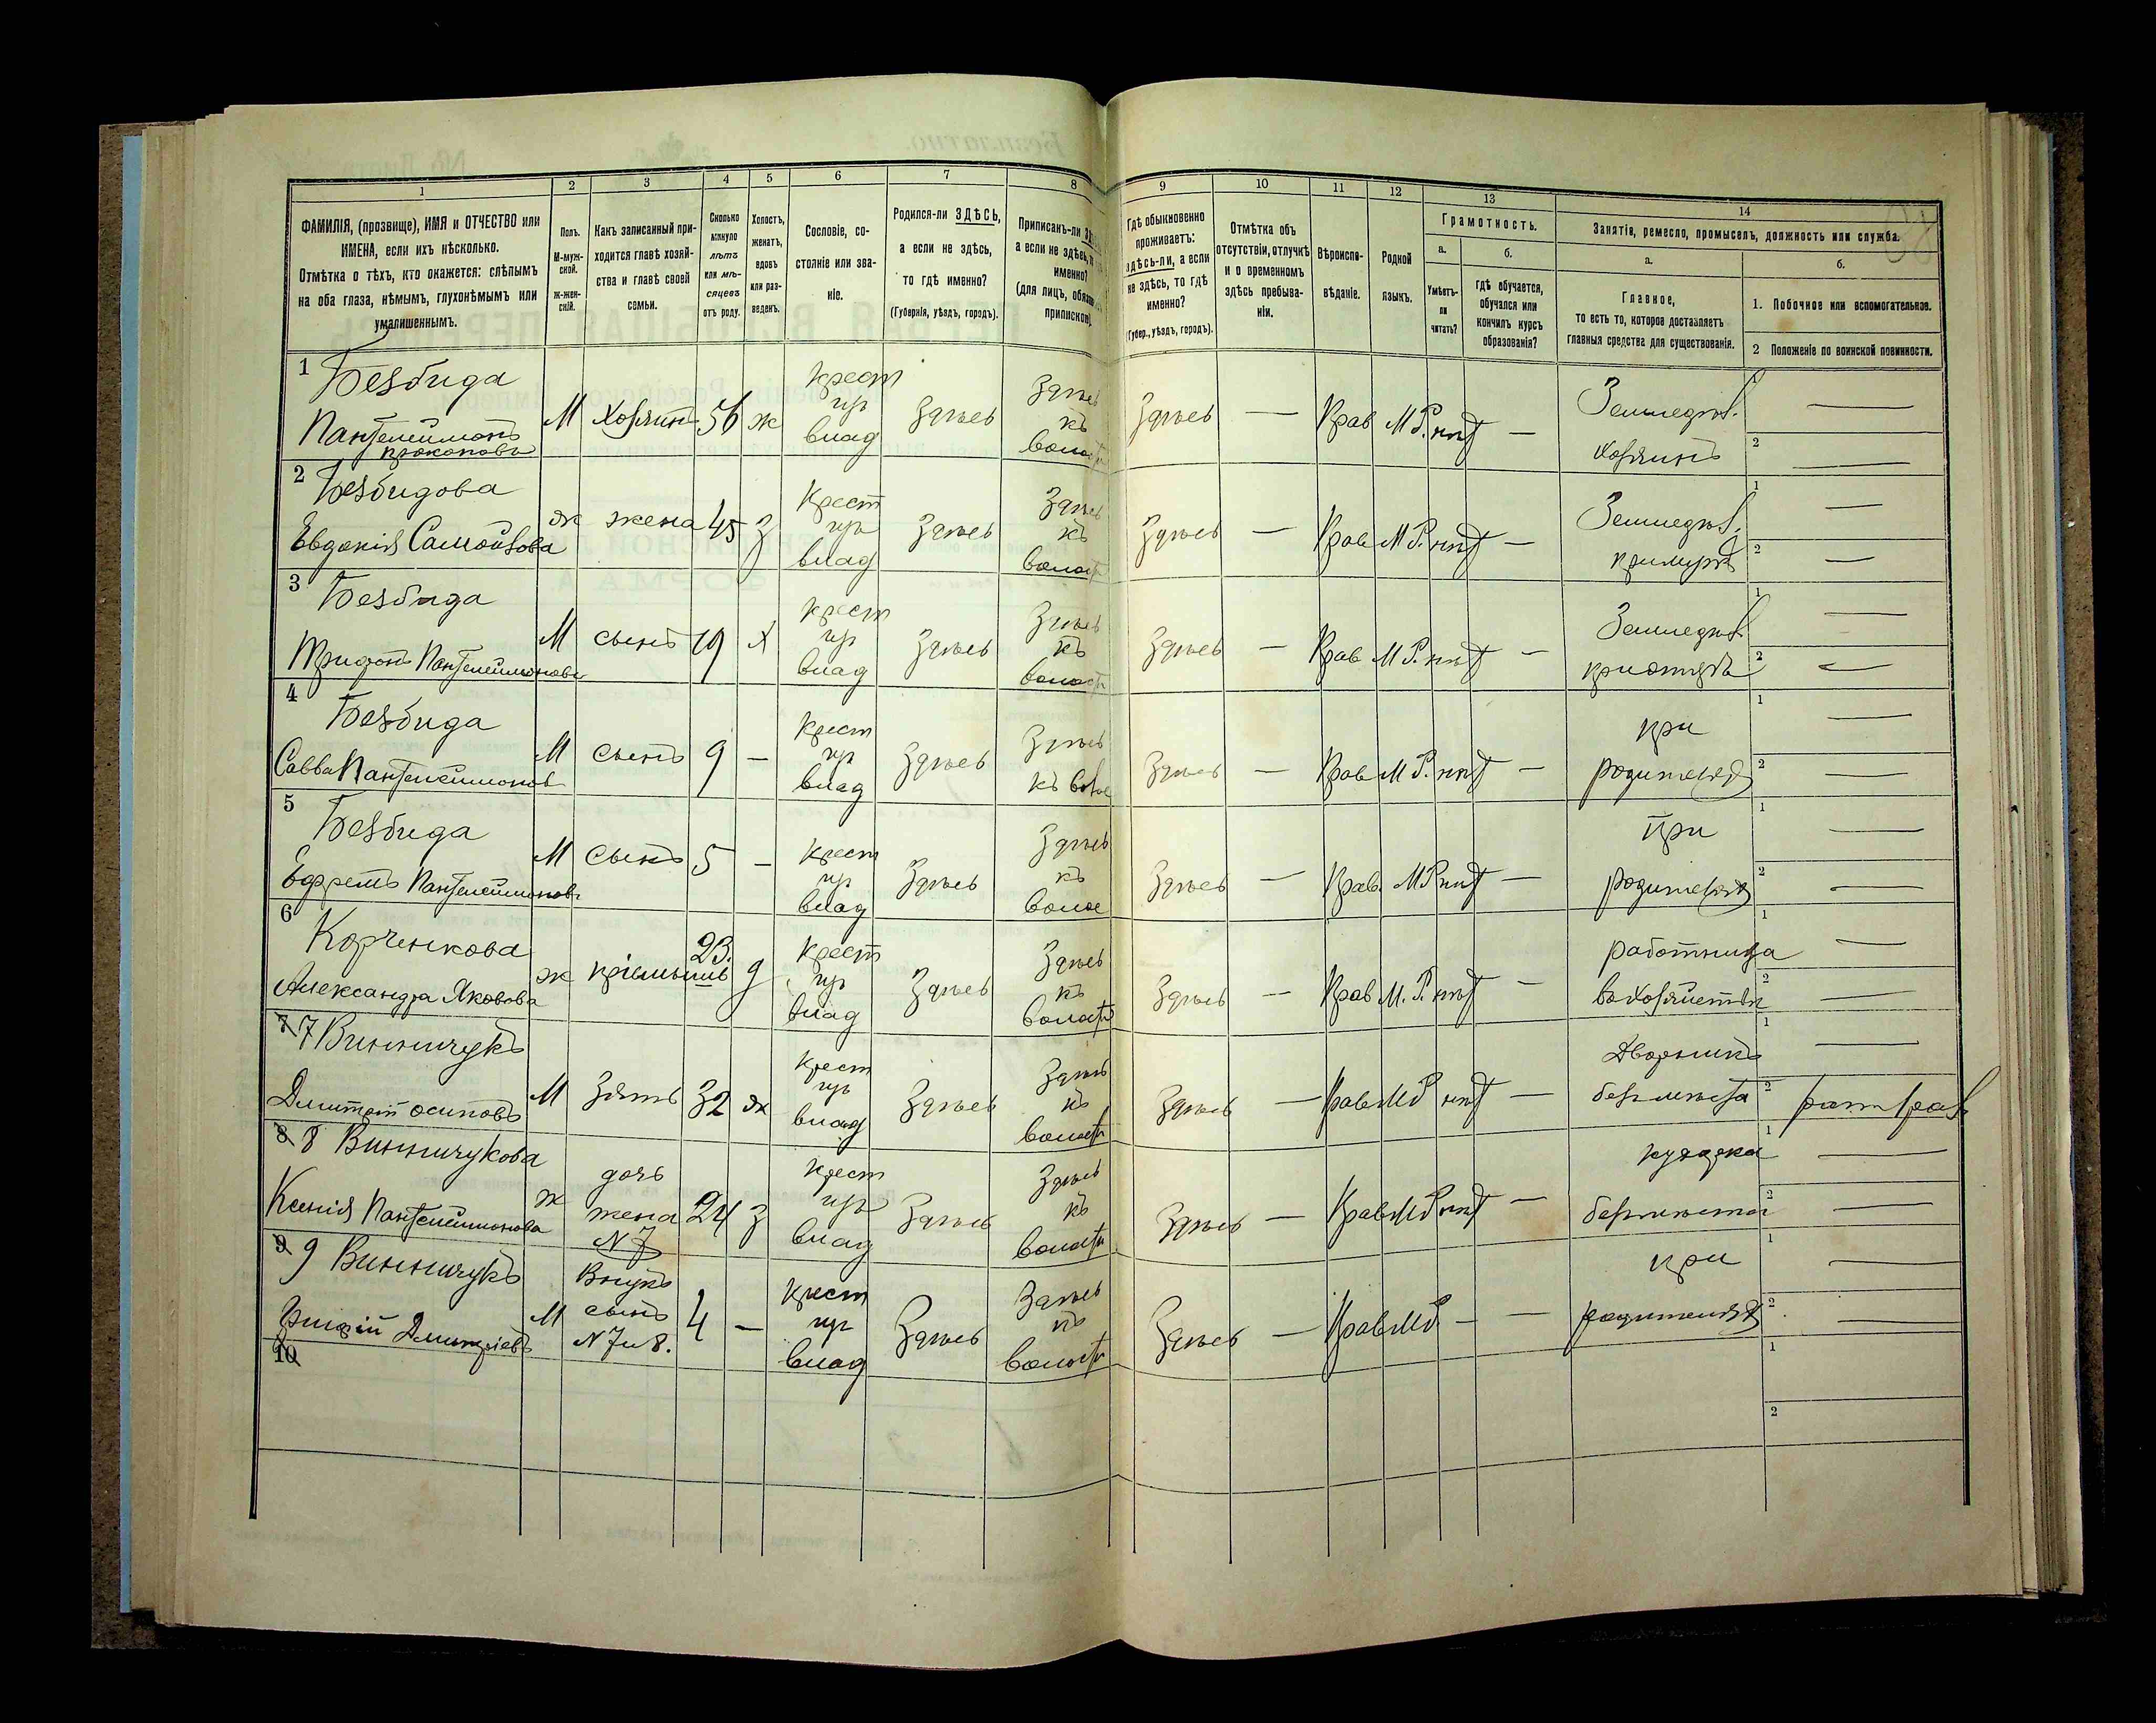 1
2
3
4
5
6
7
8
9
10
11
12
13
14
ФАМИЛІЯ, (прозвище), ИМЯ и ОТЧЕСТВО или
ИМЕНА, если ихъ нѣсколько.
Отмѣтка о тѣхъ, кто окажется: слѣпымъ
на оба глаза, нѣмымъ, глухонѣмымъ или
умалишеннымъ.
Полъ.
М-муж-
ской.
Ж-жен-
скій.
Какъ записанный при-
ходится главѣ хозяй-
ства и главѣ своей
семьи.
Сколько
минуло
лѣтъ
или мѣ-
сяцевъ
отъ роду.
Холостъ,
женатъ,
вдовъ
или раз-
веденъ.
Сословіе, со-
стояніе или зва-
ніе.
Родился-ли ЗДѢСЬ,
а если не здѣсь,
то гдѣ именно?
(Губернія, уѣздъ, городъ).
Приписанъ-ли
а если не здѣсь,
именно?
(для лицъ,
припискою)
Гдѣ обыкновенно
проживаетъ:
здѣсь-ли, а если
не здѣсь, то гдѣ
именно?
(Губер., уѣздъ, городъ).
Отмѣтка объ
отсутствіи, отлучкѣ
и о временномъ
здѣсь пребыва-
ніи.
Вѣроиспо-
вѣданіе.
Родной
языкъ.
Грамотность.
а.
Умѣетъ-
ли
читать?
б.
гдѣ обучается,
обучался или
кончилъ курсъ
образованія?
Занятія, ремесло, промыселъ, должность или служба.
а.
Главное,
то есть то, которое доставляетъ
главныя средства для существованія.
б.
1. Побочное или вспомогательное.
2 Положеніе по воинской повинности.
1 Безбида
Пантелеимонъ
Прокоповъ
М Хозяинъ 56 ж
крест
влад
Здѣсь
Здѣсь
къ
волости
Здѣсь — Прав М Р. нѣт —
Земледѣл.
хозяинъ
1 —
2 —
2 Безбидова
Евдокія Самойлова
ж жена 45 з
Крест
влад
Здѣсь
Здѣсь
къ
волости
Здѣсь — Прав М Р. нѣт —
Земледѣл.
1 —
2 —
3 Безбида
Трифонъ Пантелеимоновъ
М сынъ 19 х
крест
влад
Здѣсь
Здѣсь
къ
волости
Здѣсь — Прав М Р. нѣт —
Земледѣл
при отцѣ
1 —
2 —
4 Безбида
Савва Пантелеимоновъ
М сынъ 9 —
Крест
влад
Здѣсь
Здѣсь
къ вол
Здѣсь — Прав М Р. нѣт —
при
родителях
1 —
2 —
5 Безбида
Ефремъ Пантелеимоновъ
М Сынъ 5 —
крест
влад
Здѣсь
Здѣсь
къ
волос
Здѣсь — Прав. М Р нѣт —
При
родителях
1 —
2 —
6 Корченкова
Александра Яковова
ж 23. д
Крест
влад
Здѣсь
Здѣсь
къ
волости
Здѣсь — Прав М. Р. нѣт —
работница
в хозяйствѣ
1 —
2 —
7 7 Винничукъ
Дмитрій Осиповъ
М Зять 32 ж
крест
влад
Здѣсь
Здѣсь
къ
волости
Здѣсь — Прав М Р нѣт —
Дворникъ
без мѣста
1 —
2
8 8 Винничукова
Ксенія Пантелеимонова
ж дочь
жена
N 7
24 з
крест
влад
Здѣсь
Здѣсь
къ
волости
Здѣсь — Прав М Р нѣт —
кухарка
без мѣста
1 —
2 —
9 9 Винничукъ
Дмитріевъ
М Внукъ
сынъ
N 7 и 8.
4 —
Крест
влад
Здѣсь
Здѣсь
къ
волости
Здѣсь — Прав М Р —
при
родителях
1 —
2 —
10
1
2